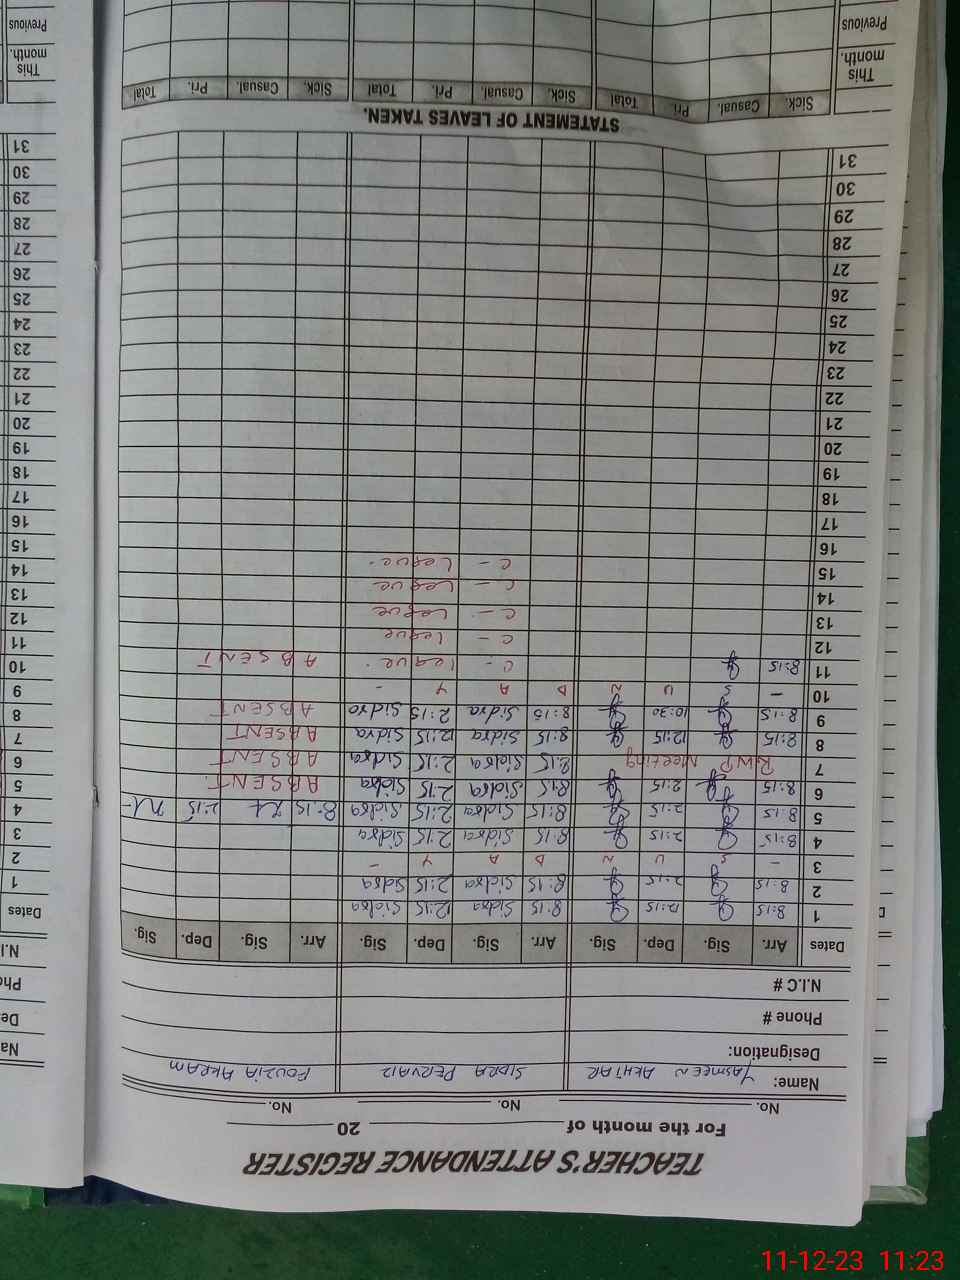 TEACHER'S ATTENDANCE REGISTER
For the month of 20
No. No. No.
Name: YASMEEN AKHTAR SIDRA PERVAIZ FOUZIA AKRAM
Designation:
Phone #
N.I.C #
Dates Arr. Sig. Dep. Sig. Arr. Sig. Dep. Sig. Arr. Sig. Dep. Sig.
1 8:15 12:15 8:15 Sidra 12:15 Sidra
2 8:15 2:15 8:15 Sidra 2:15 Sidra
3 - S U N D A Y -
4 8:15 2:15 8:15 Sidra 2:15 Sidra
5 8:15 2:15 8:15 Sidra 2:15 Sidra 8:15 2:15
6 8:15 2:15 8:15 Sidra 2:15 Sidra ABSENT
7 RWP Meeting 8:15 Sidra 2:15 Sidra ABSENT
8 8:15 12:15 8:15 Sidra 12:15 Sidra ABSENT
9 8:15 10:30 8:15 Sidra 2:15 Sidra ABSENT
10 - S U N D A Y -
11 8:15 C - Leave. ABSENT
12 C - Leave
13 C - Leave
14 C - Leave
15 C - Leave.
16
17
18
19
20
21
22
23
24
25
26
27
28
29
30
31
STATEMENT OF LEAVES TAKEN.
Sick. Casual. Pri. Total Sick. Casual. Pri. Total Sick. Casual. Pri. Total
This month.
Previous
Na
De
Pho
N.I.
Dates
1
2
3
4
5
6
7
8
9
10
11
12
13
14
15
16
17
18
19
20
21
22
23
24
25
26
27
28
29
30
31
This month.
Previous
11-12-23 11:23